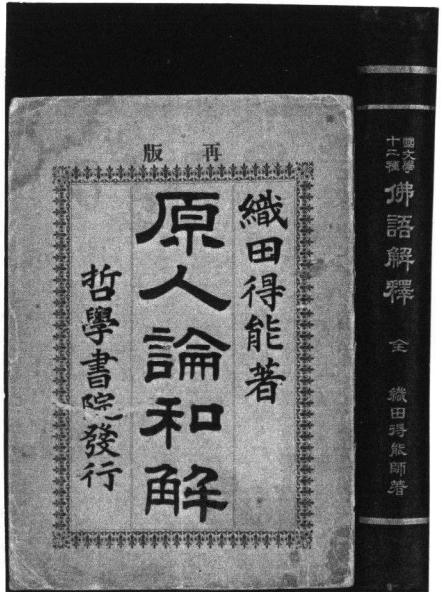 再版
織田得能著
原人論和解
哲學書院發行
國文學
十二種
佛語解釋 全 織田得能師著